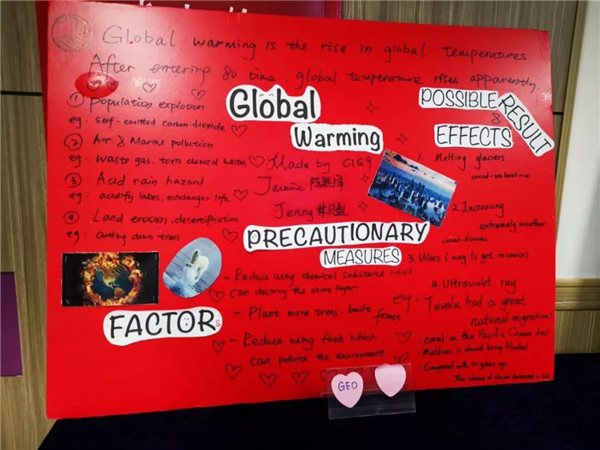 Global warming is the rise in global temperatures
After entering 80 time, global temperature rises apparently.
① Population explosion
eg: self-emitted carbon dioxide
② Air & Marine pollution
eg: waste gas. toxic chemical wastes
③ Acid rain hazard
eg: acidify lakes, endanger life
④ Land erosion, desertification
eg: cutting down trees
FACTORs
Global
Warming
Made by C1G9
Jasmine
Jenny
PRECAUTIONARY
MEASURES
- Reduce using chemical substance which
can destroy the ozone layer
- Plant more trees, built forest
- Reduce using fuels which
can pollute the environment
POSSIBLE RESULT
&
EFFECTS
1. Melting glaciers
2 Increasing
extremely weather
3 Wars (way to get resource)
4 Ultraviolet ray
eg: Tuvalu had a great
national migration!
· coral in the Pacific Ocean died
· Maldives is almost being flooded
· Compared with 50 years ago
The volume of glacier decreased
GEO